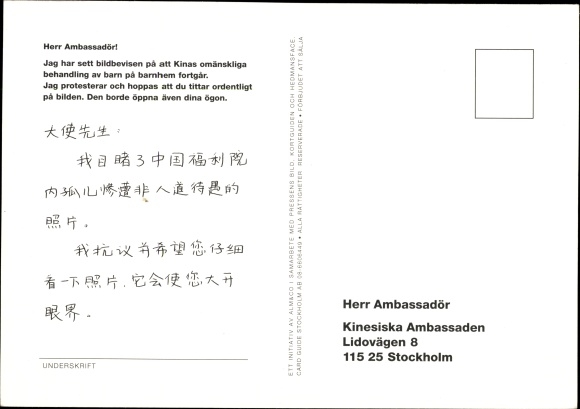 Herr Ambassadör!
Jag har sett bildbevisen på att Kinas omänskliga
behandling av barn på barnhem fortgår.
Jag protesterar och hoppas att du tittar ordentligt
på bilden. Den borde öppna även dina ögon.
大使先生：
我目睹了中国福利院
内孤儿惨遭非人道待遇的
照片。
我抗议并希望您仔细
看一下照片，它会使您大开
眼界。
UNDERSKRIFT
ETT INITIATIV AV ALM&CO I SAMARBETE MED PRESSENS BILD, KORTGUIDEN OCH HEDMANSFACE.
CARD GUIDE STOCKHOLM AB 08 6606449 • ALLA RÄTTIGHETER RESERVERADE • FÖRBJUDET ATT SÄLJA
Herr Ambassadör
Kinesiska Ambassaden
Lidovägen 8
115 25 Stockholm